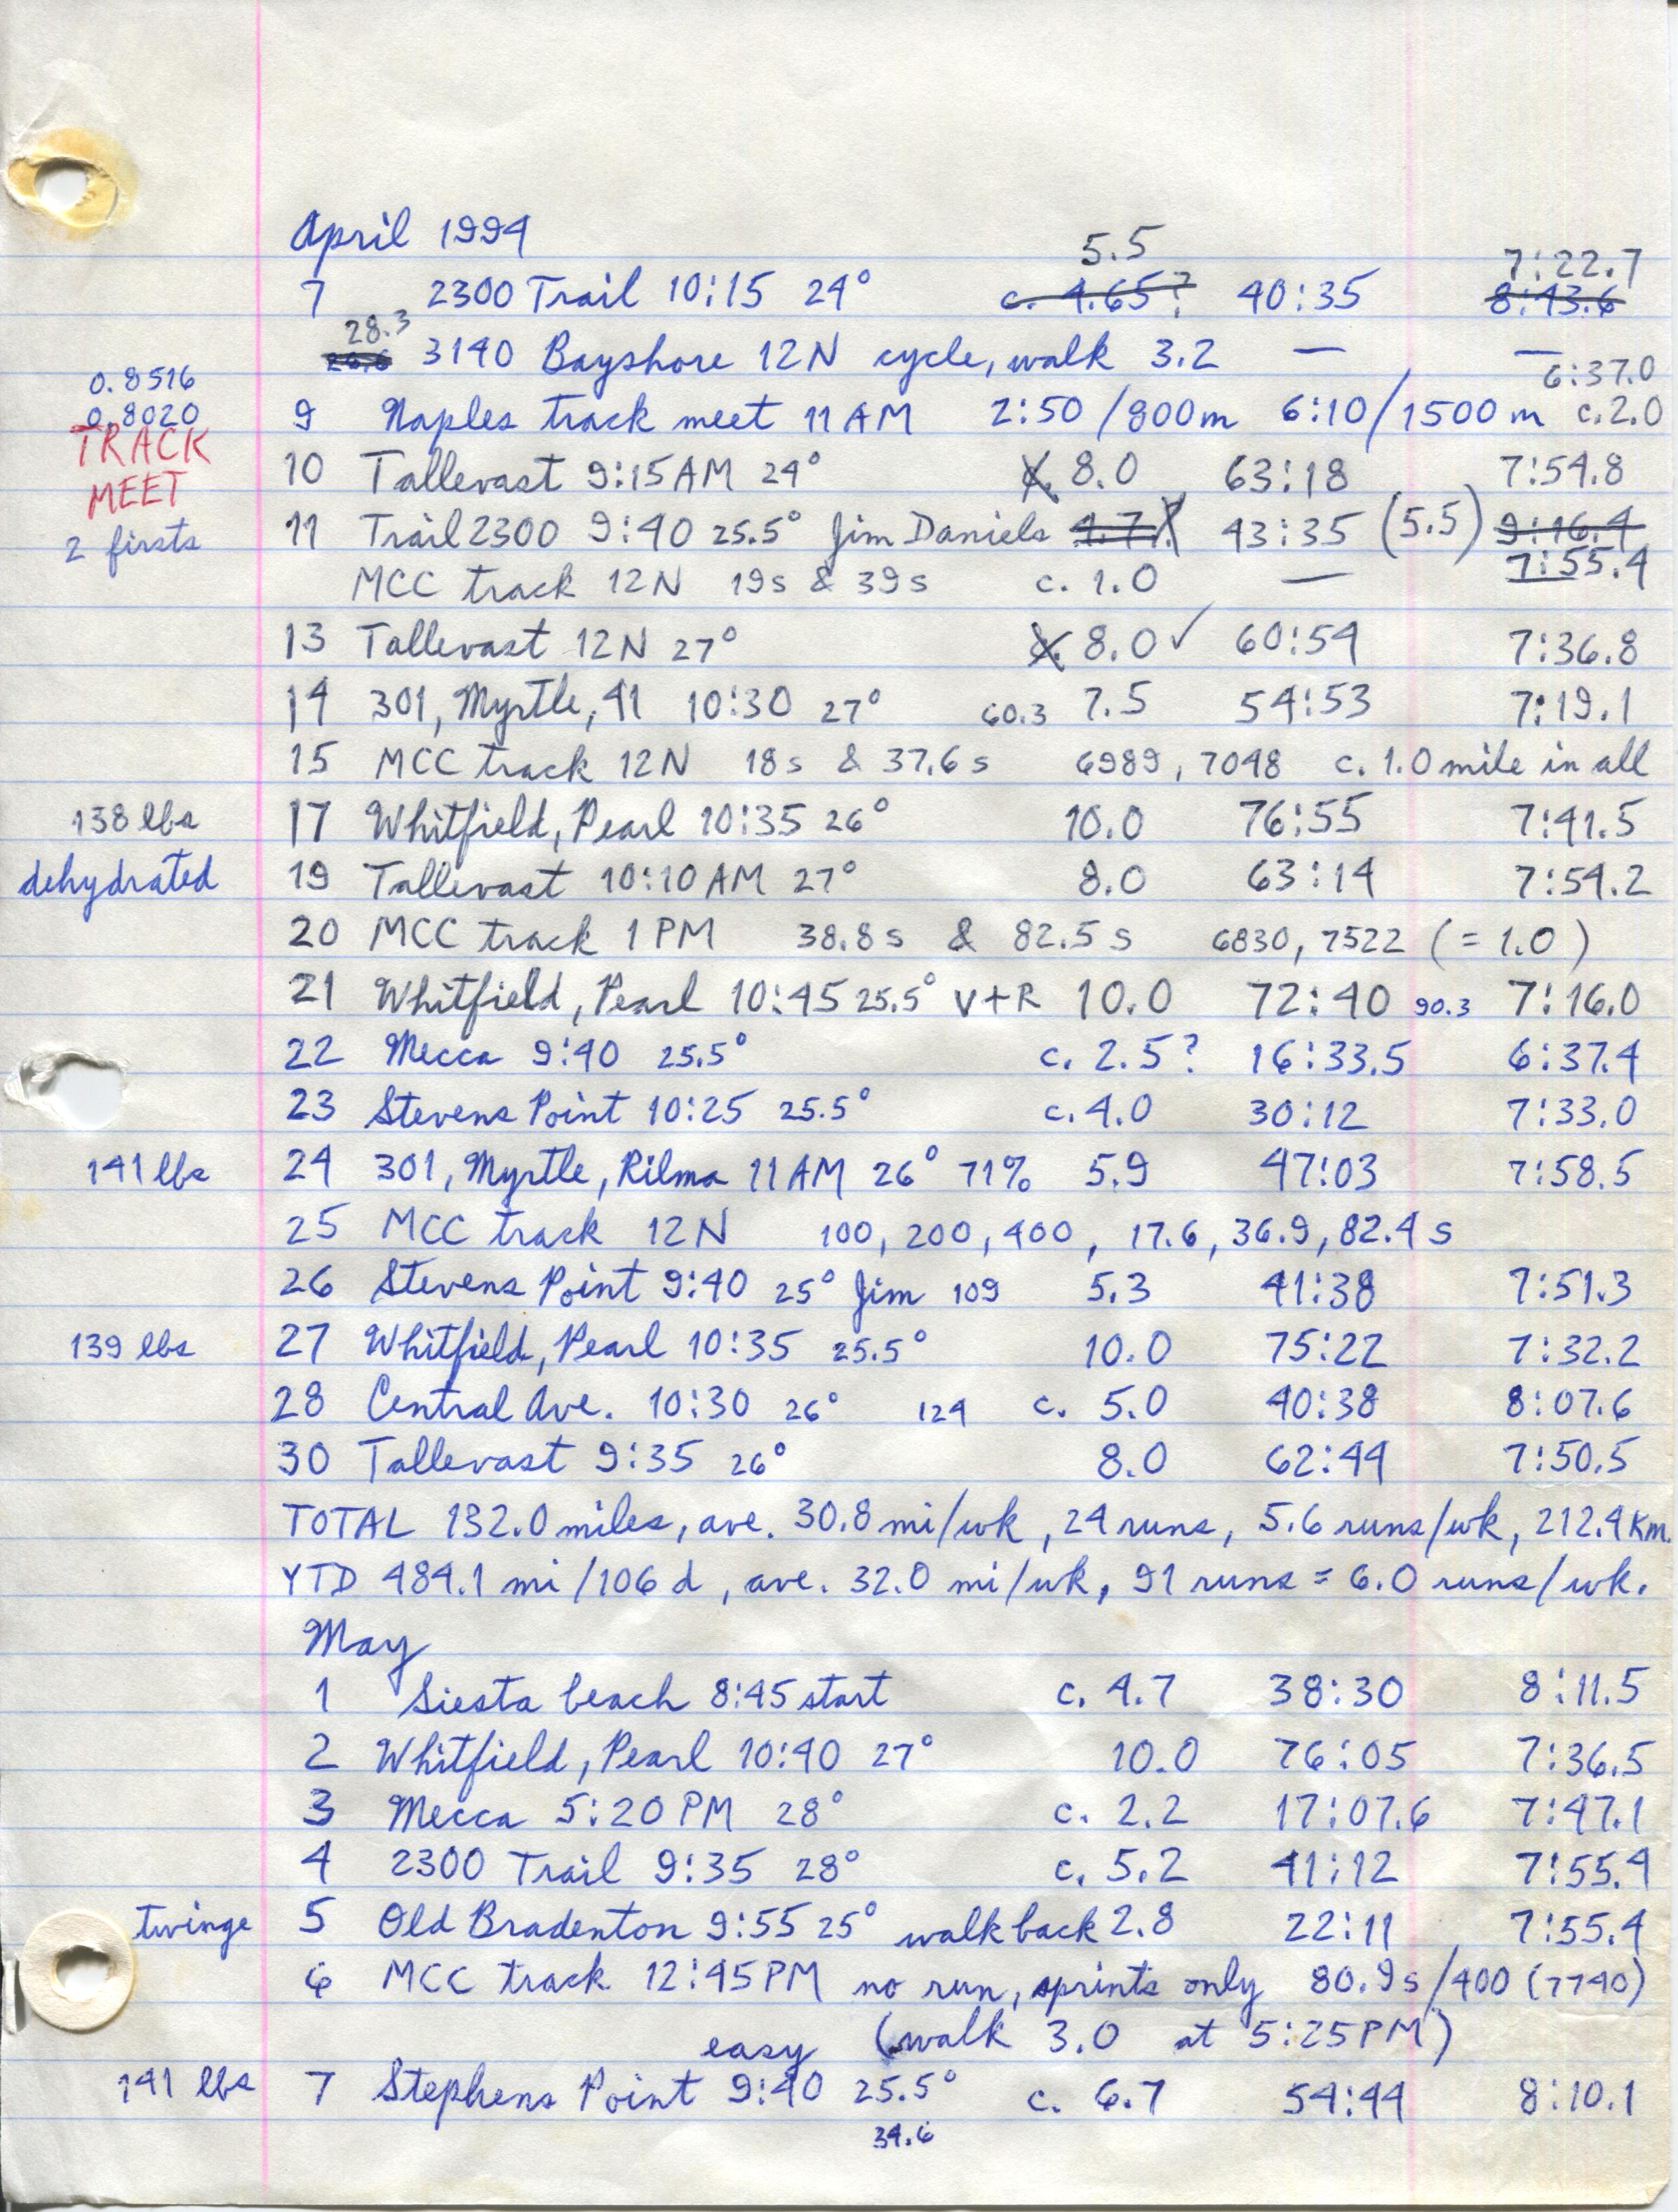 April 1994
5.5 7:22.7
7 2300 Trail 10:15 24° c. 4.65? 40:35 8:43.6
28.3
3140 Bayshore 12N cycle, walk 3.2 — —
0.8516 6:37.0
0.8020 9 Naples track meet 11 AM 2:50/800m 6:10/1500 m c. 2.0
TRACK
MEET 10 Tallevast 9:15 AM 24° 8.0 63:18 7:54.8
2 firsts 11 Trail 2300 9:40 25.5° Jim Daniels 4.7 43:35 (5.5) 9:16.4
7:55.4
MCC track 12N 19s & 39s c. 1.0 —
13 Tallevast 12N 27° 8.0 ✓ 60:54 7:36.8
14 301, Myrtle, 41 10:30 27° 60.3 7.5 54:53 7:19.1
15 MCC track 12N 18s & 37.6 s 6989, 7048 c. 1.0 mile in all
138 lbs 17 Whitfield, Pearl 10:35 26° 10.0 76:55 7:41.5
dehydrated 19 Tallevast 10:10 AM 27° 8.0 63:14 7:54.2
20 MCC track 1 PM 38.8 s & 82.5 s 6830, 7522 (= 1.0)
21 Whitfield, Pearl 10:45 25.5° V+R 10.0 72:40 90.3 7:16.0
22 Mecca 9:40 25.5° c. 2.5? 16:33.5 6:37.4
23 Stevens Point 10:25 25.5° c. 4.0 30:12 7:33.0
141 lbs 24 301, Myrtle, Rilma 11 AM 26° 71% 5.9 47:03 7:58.5
25 MCC track 12N 100, 200, 400, 17.6, 36.9, 82.4 s
26 Stevens Point 9:40 25° Jim 109 5.3 41:38 7:51.3
139 lbs 27 Whitfield, Pearl 10:35 25.5° 10.0 75:22 7:32.2
28 Central Ave. 10:30 26° 124 c. 5.0 40:38 8:07.6
30 Tallevast 9:35 26° 8.0 62:44 7:50.5
TOTAL 132.0 miles, ave. 30.8 mi/wk, 24 runs, 5.6 runs/wk, 212.4 Km.
YTD 484.1 mi/106 d, ave. 32.0 mi/wk, 91 runs = 6.0 runs/wk.
May
1 Siesta beach 8:45 start c. 4.7 38:30 8:11.5
2 Whitfield, Pearl 10:40 27° 10.0 76:05 7:36.5
3 Mecca 5:20 PM 28° c. 2.2 17:07.6 7:47.1
4 2300 Trail 9:35 28° c. 5.2 41:12 7:55.4
twinge 5 Old Bradenton 9:55 25° walk back 2.8 22:11 7:55.4
6 MCC track 12:45 PM no run, sprints only 80.9 s/400 (7740)
easy (walk 3.0 at 5:25 PM)
141 lbs 7 Stephens Point 9:40 25.5° c. 6.7 54:44 8:10.1
34.6